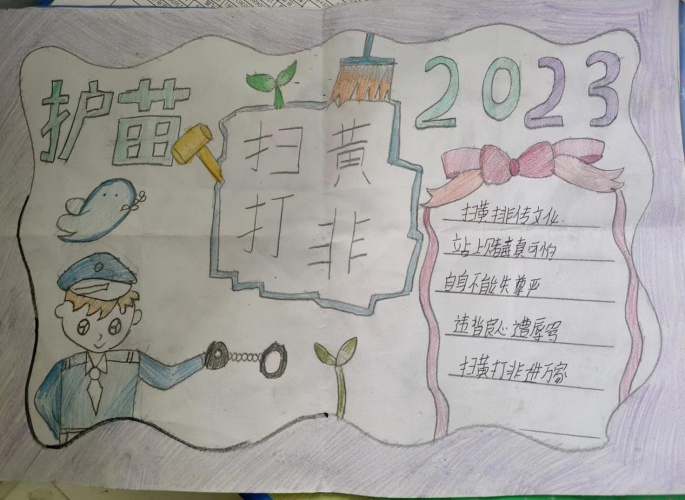 护苗
扫黄
打非
2023
扫黄排非传文化
站上赌毒真可怕
自身不能失尊严
违背良心遭辱骂
扫黄打非进万家